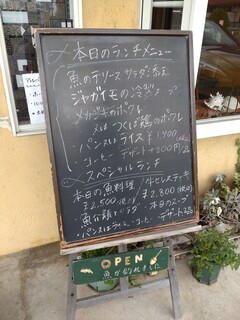 本日のランチメニュー
魚のテリーヌ サラダ添え
ジャガイモの冷製スープ
メカジキのポワレ
又は つくば鶏のポワレ
・パン又はライス ¥1,900
・コーヒー デザート+300円
スペシャルランチ
本日の魚料理 牛ヒレステーキ
¥2,500(税込) ¥2,800(税込)
本日のスープ
・パン又はライス・コーヒー・デザート
OPEN
魚が釣れました